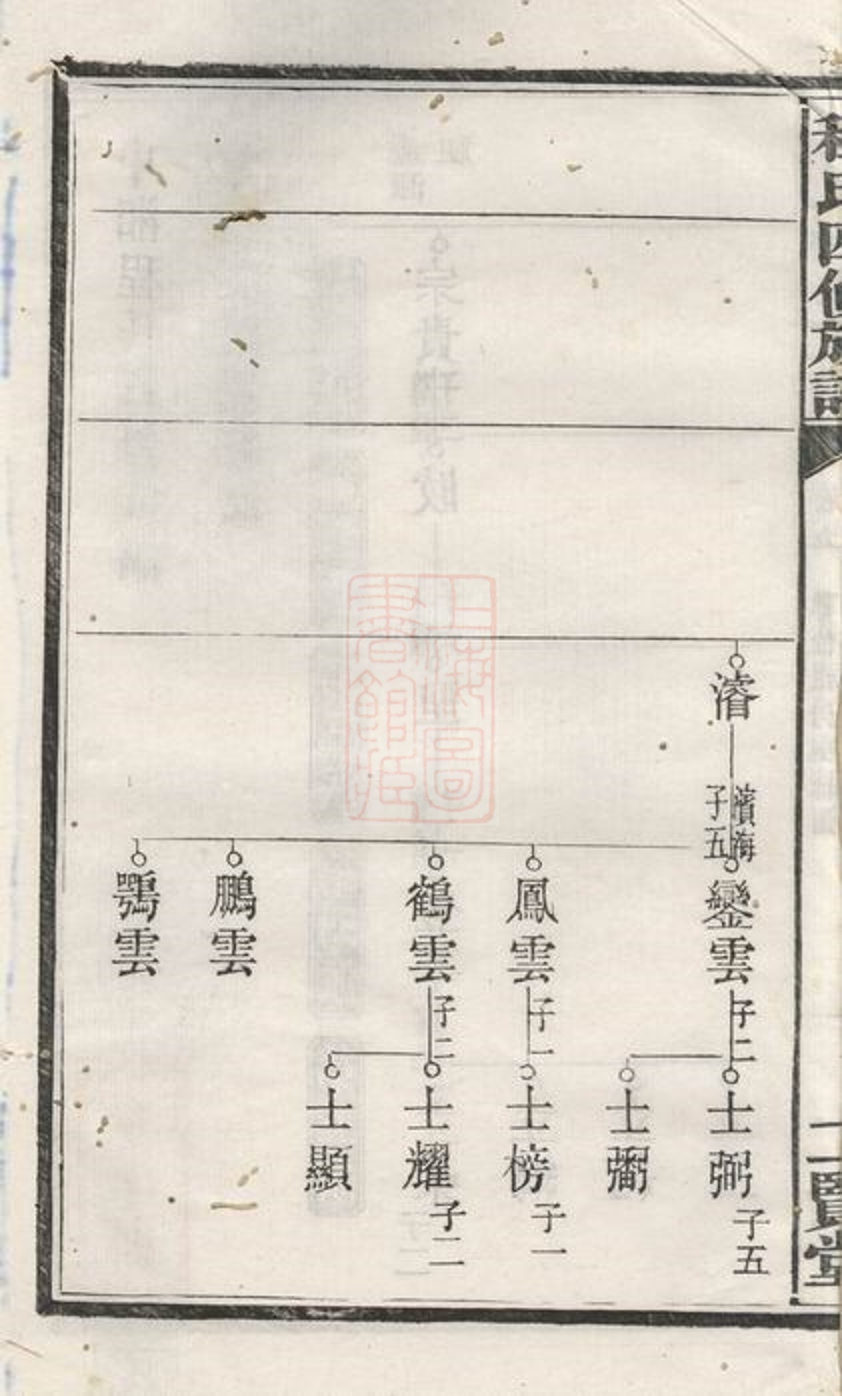 程氏四修族譜
二賢堂
濬
濱海
子五
鑾雲
子二
士弼
子五
士彌
鳳雲
子一
士榜
子一
鶴雲
子二
士耀
子二
士顯
鵬雲
鶚雲
上海圖
書館藏